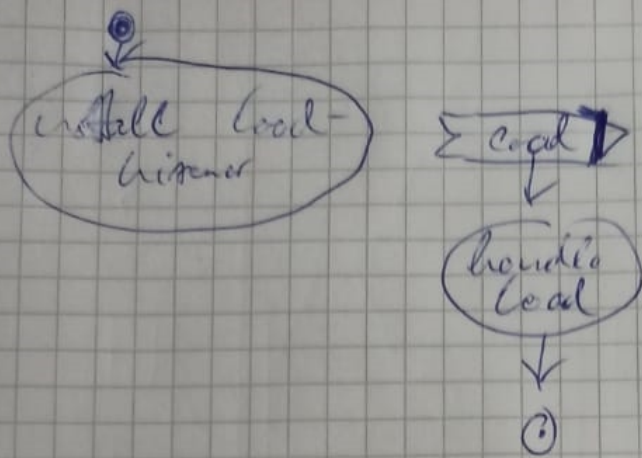 install load-
listener
load
handle
load